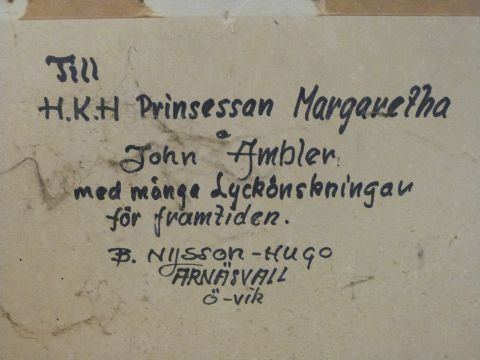 Till
H.K.H Prinsessan Margaretha
o
John Ambler
med många Lyckönskningar
för framtiden.
B. Nilsson-HUGO
ARNÄSVALL
Ö-vik